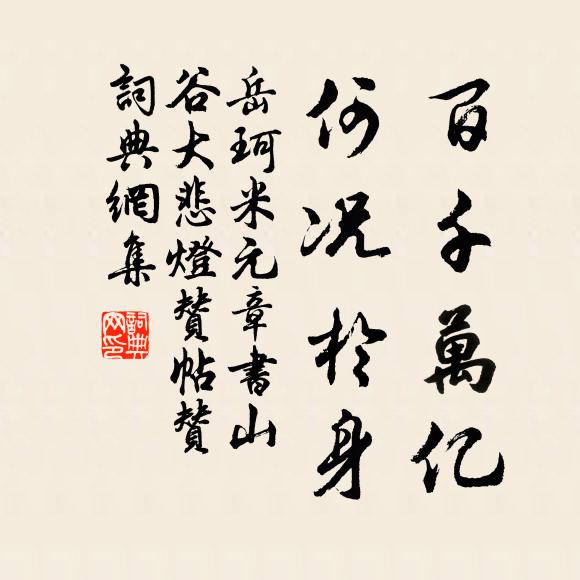 百千萬亿
何况於身
岳珂米元章書山
谷大悲燈贊帖贊
詞典網集
詞典網印